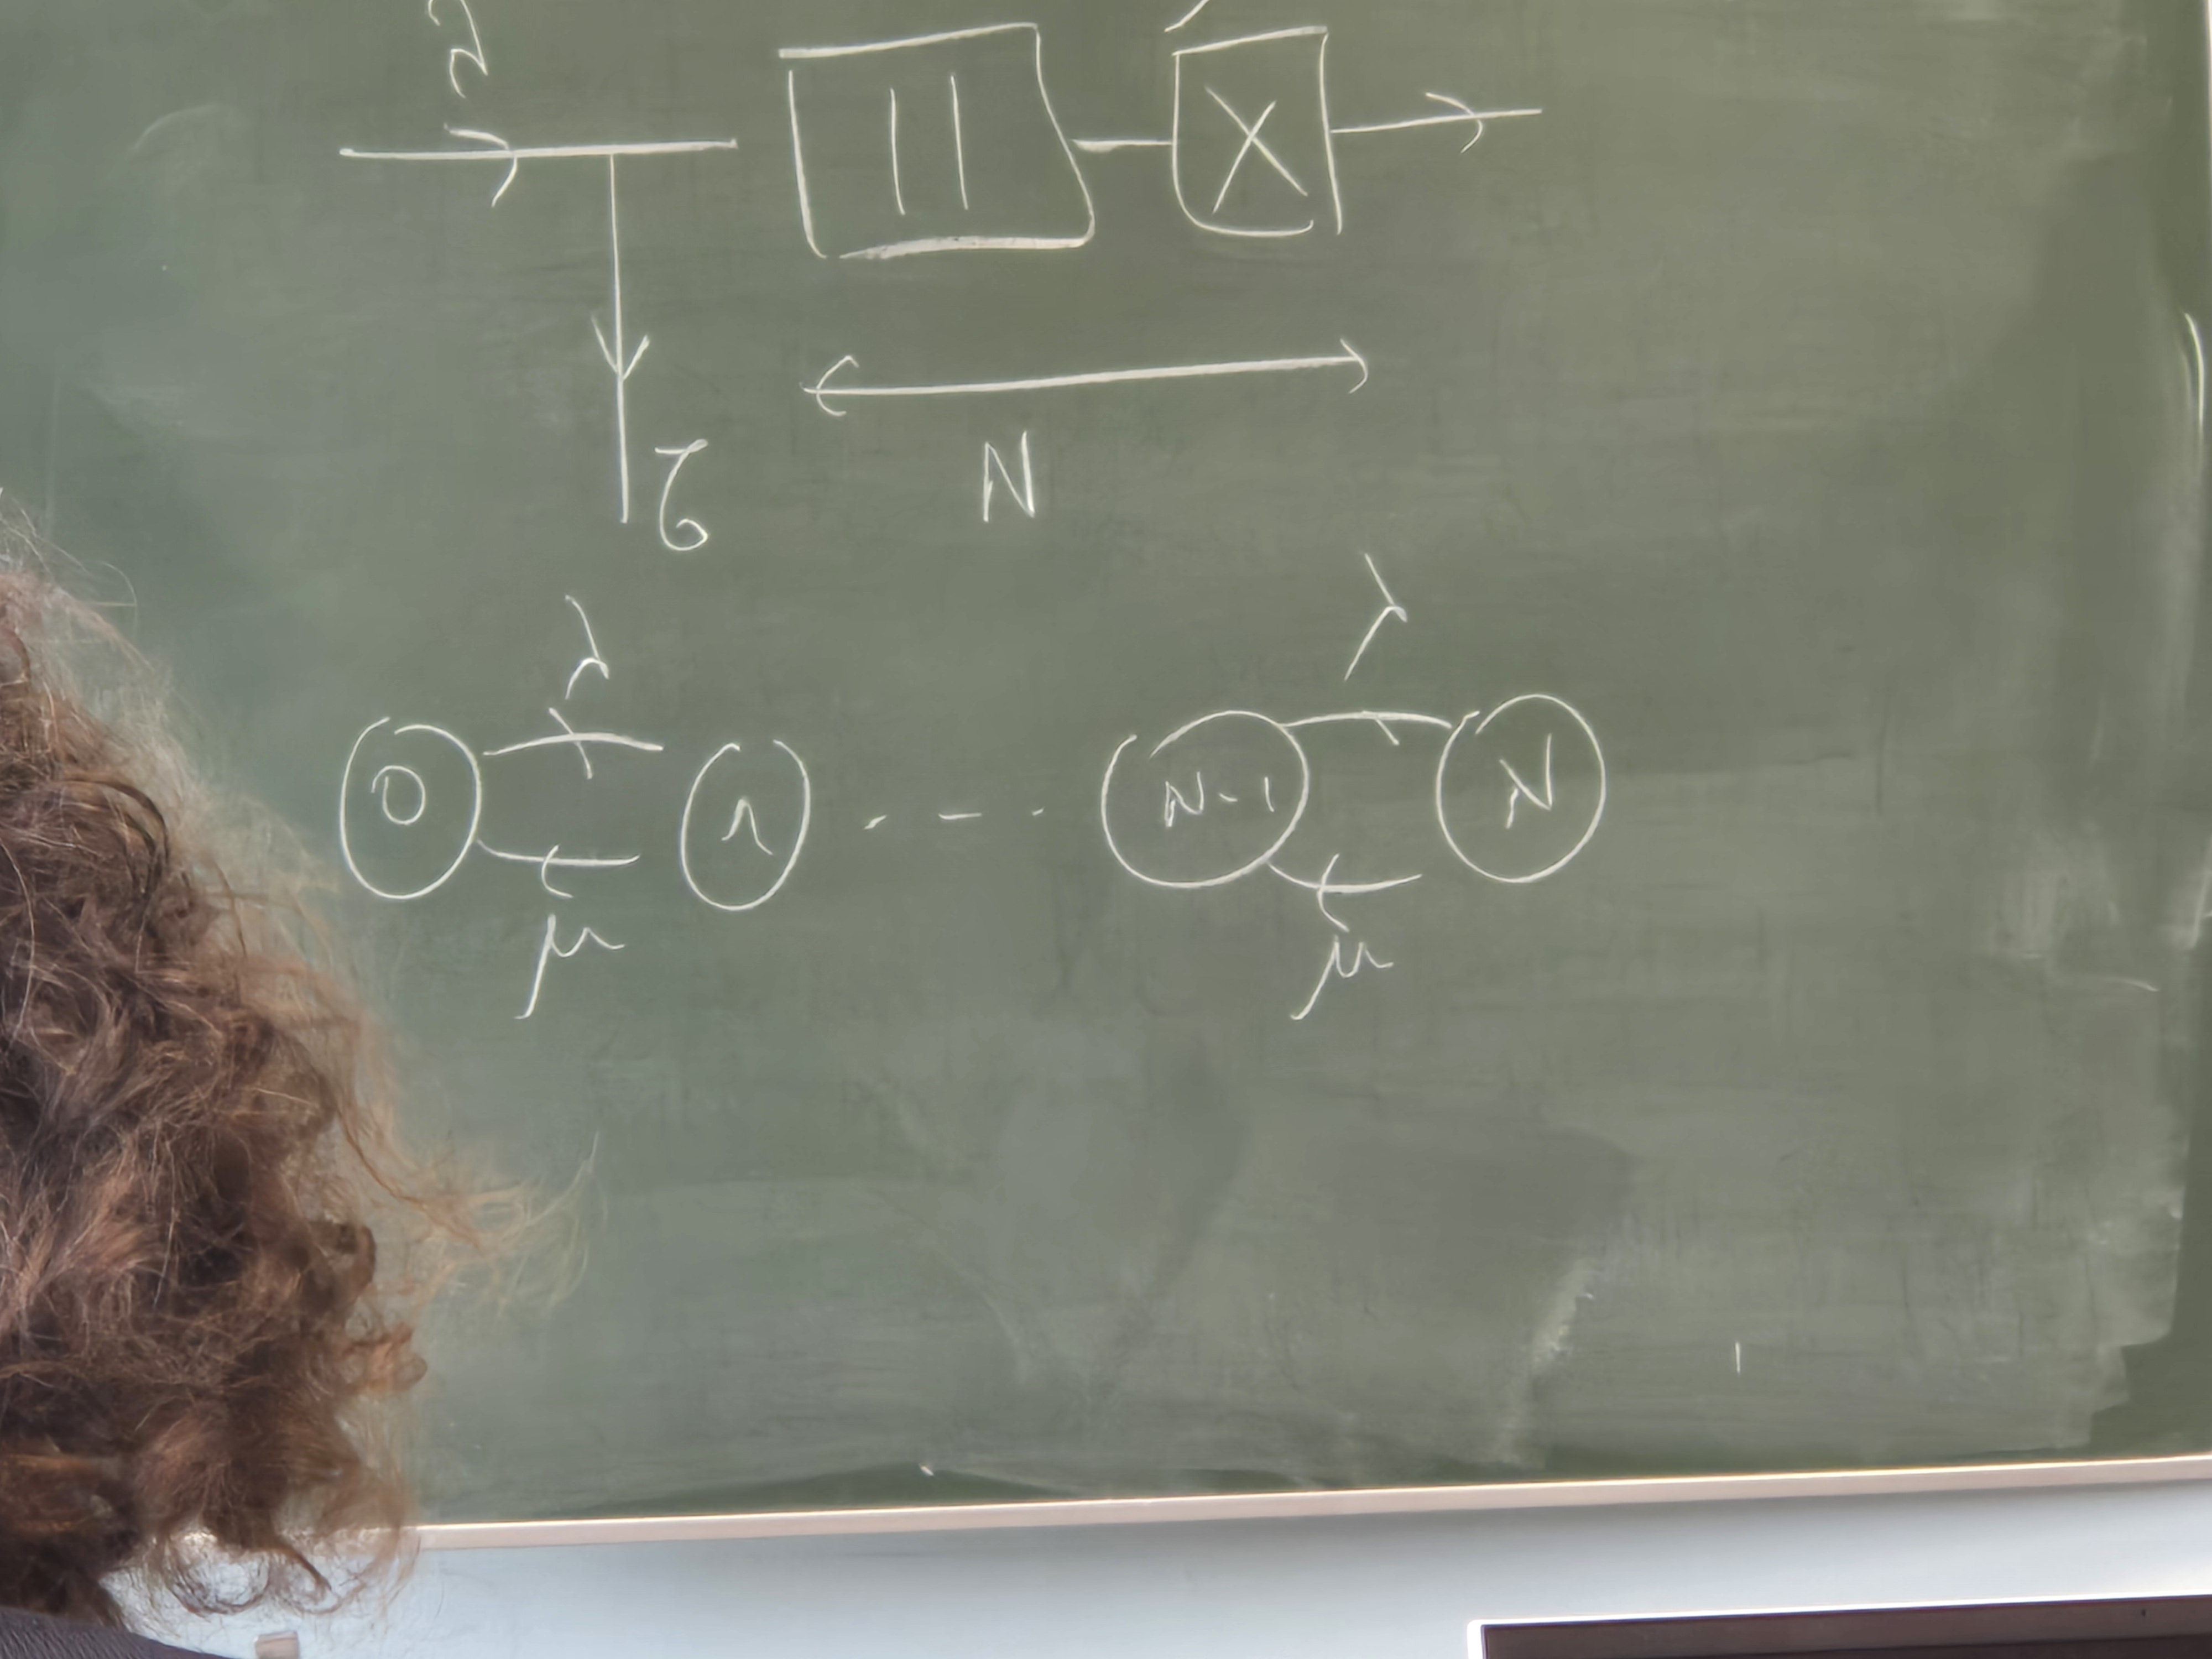 λ
X
N
λ λ
0 1 . - - . N-1 N
μ μ